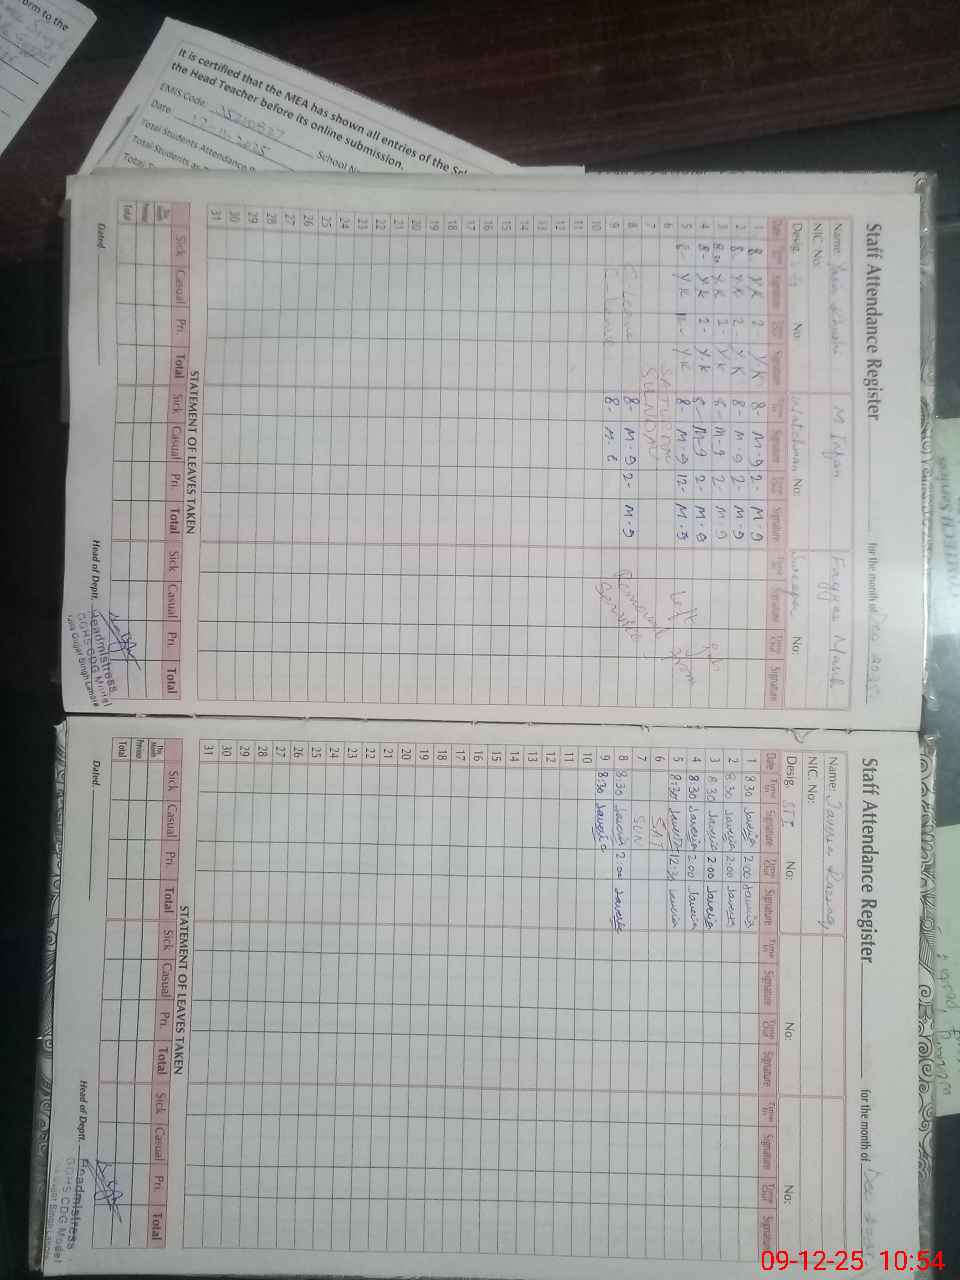 orm to the
It is certified that the MEA has shown all entries of the Sch
the Head Teacher before its online submission.
EMIS Code
Date 17-11-2025
School N
Total Students Attendance
Total Students
Staff Attendance Register
for the month of Dec 2025
Name:
M Irfan
NIC. No:
Desig.
No:
Watchman No:
Sweeper No:
Date Time In Signature Time Out Signature Time In Signature Time Out Signature Time In Signature Time Out Signature
1 8- Y.K 2- Y.K 8- M-9 2- M-9
2 8- Y.K 2- Y.K 8- M-9 2- M-9
3 8:30 Y.K 2- Y.K 8- M-9 2- M-9
4 8- Y.K 2- Y.K 8- M-9 2- M-9
5 8- Y.K 12- Y.K 8- M-9 12- M-9 Left from
6 SATURDAY
7 SUNDAY
8 C-Leave 8- M-9 2- M-9
9 C-Leave 8- Service
10
11
12
13
14
15
16
17
18
19
20
21
22
23
24
25
26
27
28
29
30
31
STATEMENT OF LEAVES TAKEN
Sick Casual Pri. Total Sick Casual Pri. Total Sick Casual Pri. Total
This Month
Previous
Total
Dated.
Head of Deptt.
Headmistress
GGHS CDG Model
Qila Gujjar Singh Lahore
Staff Attendance Register
for the month of Dec 2025
Name: Javeria Razzaq
NIC. No:
Desig. SST No: No: No:
Date Time In Signature Time Out Signature Time In Signature Time Out Signature Time In Signature Time Out Signature
1 8:30 Javeria 2:00 Javeria
2 8:30 Javeria 2:00 Javeria
3 8:30 Javeria 2:00 Javeria
4 8:30 Javeria 2:00 Javeria
5 8:30 Javeria 12:30 Javeria
6 SAT
7 SUN
8 8:30 Javeria 2:00 Javeria
9 8:30 Javeria
10
11
12
13
14
15
16
17
18
19
20
21
22
23
24
25
26
27
28
29
30
31
STATEMENT OF LEAVES TAKEN
Sick Casual Pri. Total Sick Casual Pri. Total Sick Casual Pri. Total
This Month
Previous
Total
Dated.
Head of Deptt.
Headmistress
GGHS CDG Model
09-12-25 10:54